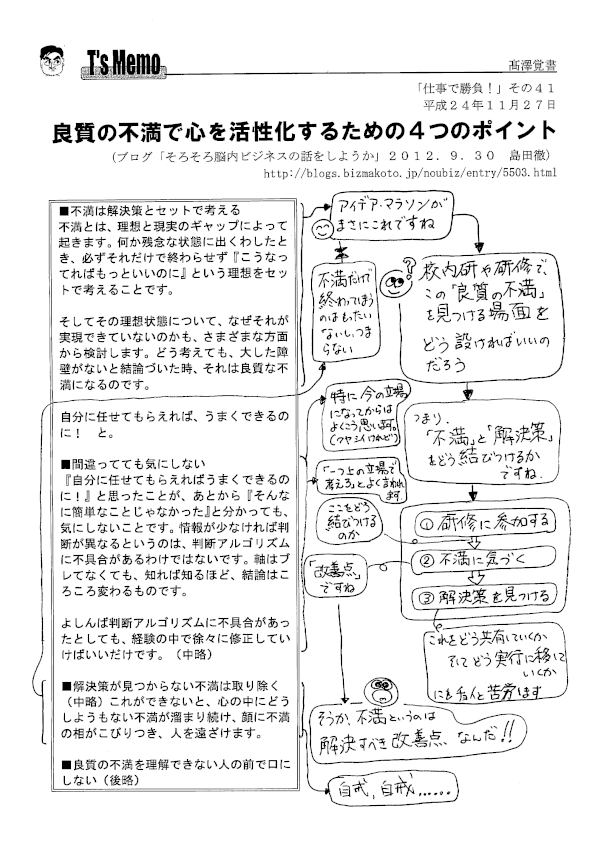 T's Memo
髙澤覚書
「仕事で勝負！」その４１
平成２４年１１月２７日
良質の不満で心を活性化するための４つのポイント
(ブログ「そろそろ脳内ビジネスの話をしようか」２０１２．９．３０　島田徹)
http://blogs.bizmakoto.jp/noubiz/entry/5503.html
■不満は解決策とセットで考える
不満とは、理想と現実のギャップによって
起きます。何か残念な状態に出くわしたと
き、必ずそれだけで終わらせず『こうなっ
てればもっといいのに』という理想をセッ
トで考えることです。
そしてその理想状態について、なぜそれが
実現できていないのかも、さまざまな方面
から検討します。どう考えても、大した障
壁がないと結論づいた時、それは良質な不
満になるのです。
自分に任せてもらえれば、うまくできるの
に！　と。
■間違ってても気にしない
『自分に任せてもらえればうまくできるの
に！』と思ったことが、あとから『そんな
に簡単なことじゃなかった』と分かっても、
気にしないことです。情報が少なければ判
断が異なるというのは、判断アルゴリズム
に不具合があるわけではないです。軸はブ
レてなくても、知れば知るほど、結論はこ
ろころ変わるものです。
よしんば判断アルゴリズムに不具合があっ
たとしても、経験の中で徐々に修正してい
けばいいだけです。（中略）
■解決策が見つからない不満は取り除く
（中略）これができないと、心の中にどう
しようもない不満が溜まり続け、顔に不満
の相がこびりつき、人を遠ざけます。
■良質の不満を理解できない人の前で口に
しない（後略）
アイデア・マラソンが
まさにこれですね
不満だけで
終わってしまう
のはもったい
ないし、つま
らない
?
校内研や研修で、
この「良質の不満」
を見つける場面を
どう設ければいいの
だろう
特に今の立場
になってからは
よくこう思います。
(クヤシイけれど)
つまり、
「不満」と「解決策」
をどう結びつけるか
ですね.
「一つ上の立場で
考えろ」とよく言われ
ます
ここをどう
結びつける
のか
①研修に参加する
②不満に気づく
③解決策を見つける
「改善点」
ですね
これをどう共有していくか
そしてどう実行に移して
いくか
にもチョイと苦労します
そうか、不満というのは
解決すべき改善点 なんだ!!
自戒,自戒……